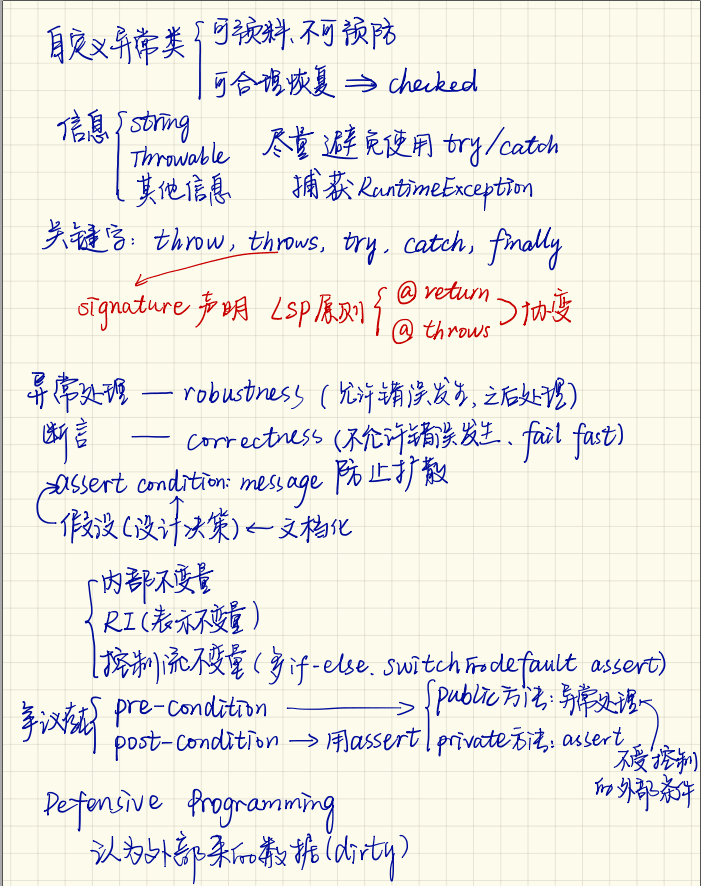 自定义异常类 可预料、不可预防
可合理恢复 ⇒ checked
信息 String
Throwable
其他信息
尽量避免使用 try/catch
捕获 RuntimeException
关键字: throw, throws, try, catch, finally
signature 声明 LSP原则 @ return
@ throws 协变
异常处理 — robustness (允许错误发生,之后处理)
断言 — correctness (不允许错误发生、fail fast)
assert condition: message 防止扩散
假设(设计决策) ← 文档化
内部不变量
RI(表示不变量)
控制流不变量(多if-else. switch的default assert)
争议 pre-condition → public方法: 异常处理
post-condition → 用assert private方法: assert
不受控制
的外部条件
Defensive Programming
认为外部来的数据(dirty)